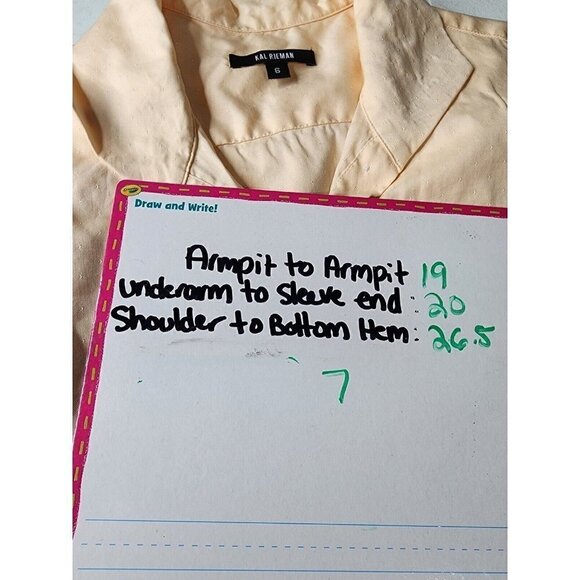 KAL RIEMAN
6
Crayola
Draw and Write!
Armpit to Armpit 19
underarm to Sleeve end: 20
Shoulder to Bottom Hem: 26.5
7